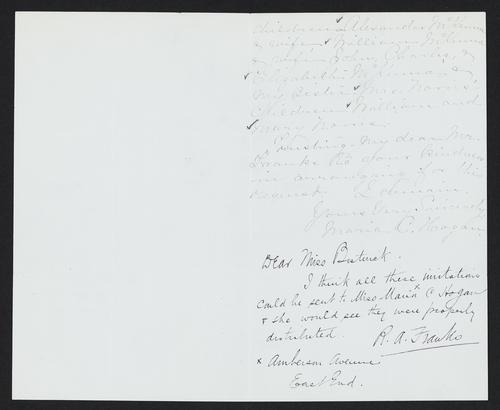 children ✓Alexander McKinnon
& wife ✓William McKinnon
& wife John, Charles, &
✓Elizabeth McKinnon &
my Sister Mrs. Norris'
children ✓William and
✓Mary Norris.
Trusting my dear Mr.
Franks to your kindness
in arranging for this
request I remain,
Yours Very Sincerely
Maria C. Hogan
Dear Miss Bistwick.
I think all these invitations
could be sent to Miss Maria x C Hogan
& she would see they were properly
distributed. R. A. Franks
x Amberson Avenue
East End.